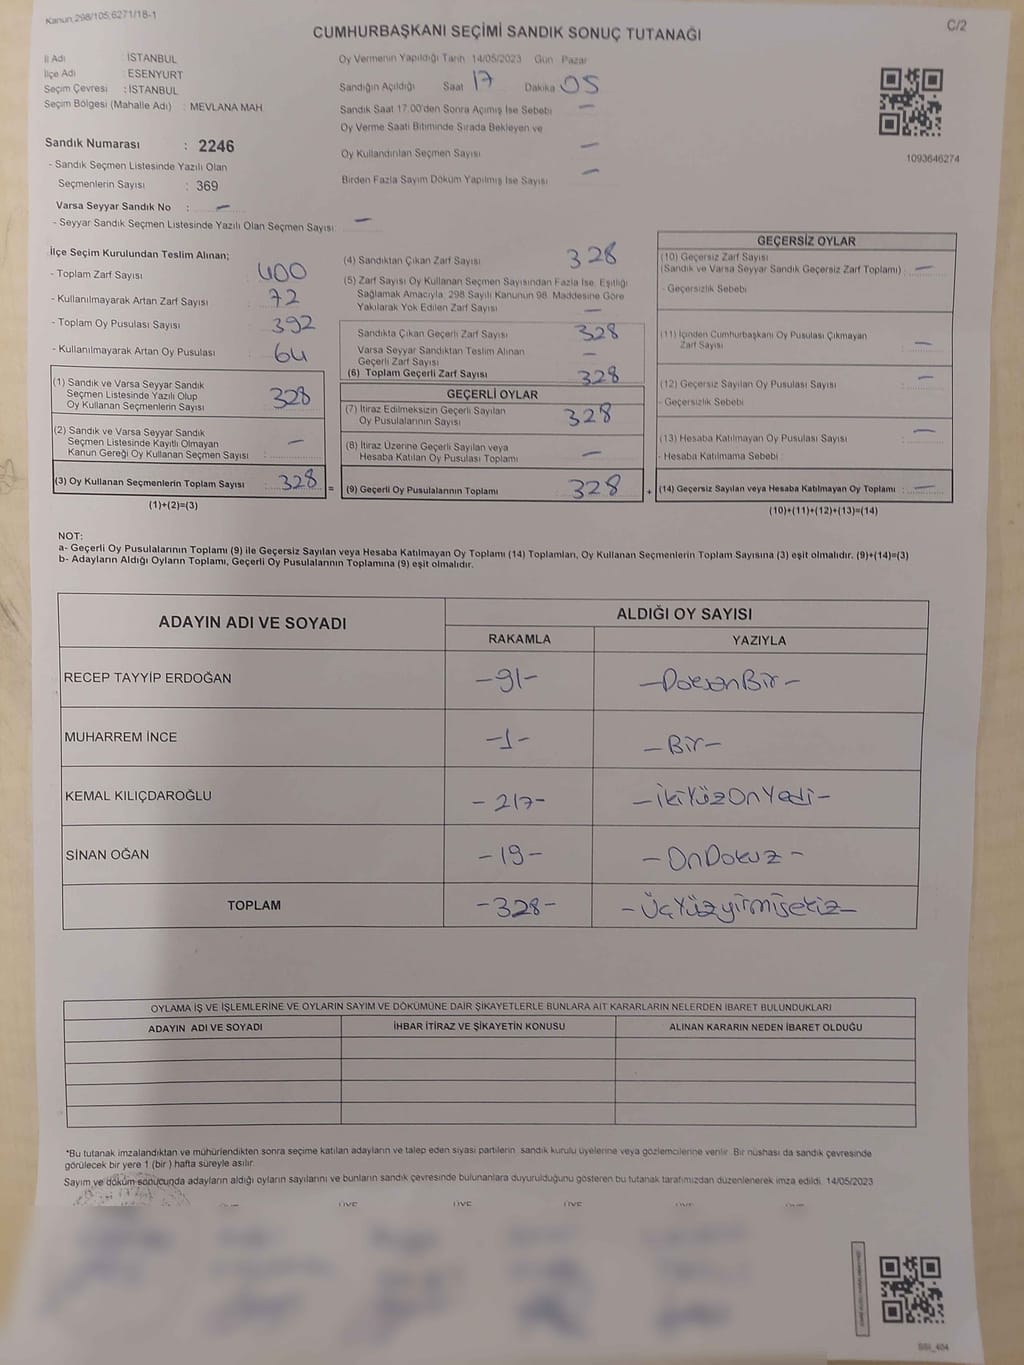 Kanun,298/105;6271/18-1
C/2
CUMHURBAŞKANI SEÇİMİ SANDIK SONUÇ TUTANAĞI
İl Adı : İSTANBUL
İlçe Adı : ESENYURT
Seçim Çevresi : İSTANBUL
Seçim Bölgesi (Mahalle Adı) : MEVLANA MAH.
Sandık Numarası : 2246
- Sandık Seçmen Listesinde Yazılı Olan
Seçmenlerin Sayısı : 369
Varsa Seyyar Sandık No : -
- Seyyar Sandık Seçmen Listesinde Yazılı Olan Seçmen Sayısı: -
Oy Vermenin Yapıldığı Tarih 14/05/2023 Gün Pazar
Sandığın Açıldığı Saat 17 Dakika 05
Sandık Saat 17.00'den Sonra Açımış İse Sebebi -
Oy Verme Saati Bitiminde Sırada Bekleyen ve
Oy Kullandırılan Seçmen Sayısı -
Birden Fazla Sayım Döküm Yapılmış İse Sayısı -
1093646274
İlçe Seçim Kurulundan Teslim Alınan;
- Toplam Zarf Sayısı 400
- Kullanılmayarak Artan Zarf Sayısı 72
- Toplam Oy Pusulası Sayısı 392
- Kullanılmayarak Artan Oy Pusulası 64
(1) Sandık ve Varsa Seyyar Sandık
Seçmen Listesinde Yazılı Olup
Oy Kullanan Seçmenlerin Sayısı 328
(2) Sandık ve Varsa Seyyar Sandık
Seçmen Listesinde Kayıtlı Olmayan
Kanun Gereği Oy Kullanan Seçmen Sayısı : -
(3) Oy Kullanan Seçmenlerin Toplam Sayısı 328 =
(1)+(2)=(3)
(4) Sandıktan Çıkan Zarf Sayısı 328
(5) Zarf Sayısı Oy Kullanan Seçmen Sayısından Fazla İse, Eşitliği
Sağlamak Amacıyla; 298 Sayılı Kanunun 98. Maddesine Göre
Yakılarak Yok Edilen Zarf Sayısı -
Sandıkta Çıkan Geçerli Zarf Sayısı 328
Varsa Seyyar Sandıktan Teslim Alınan
Geçerli Zarf Sayısı -
(6) Toplam Geçerli Zarf Sayısı 328
GEÇERLİ OYLAR
(7) İtiraz Edilmeksizin Geçerli Sayılan
Oy Pusulalarının Sayısı 328
(8) İtiraz Üzerine Geçerli Sayılan veya
Hesaba Katılan Oy Pusulası Toplamı -
(9) Geçerli Oy Pusulalarının Toplamı 328 +
GEÇERSİZ OYLAR
(10) Geçersiz Zarf Sayısı
(Sandık ve Varsa Seyyar Sandık Geçersiz Zarf Toplamı) : -
- Geçersizlik Sebebi
(11) İçinden Cumhurbaşkanı Oy Pusulası Çıkmayan
Zarf Sayısı : -
(12) Geçersiz Sayılan Oy Pusulası Sayısı : -
- Geçersizlik Sebebi
(13) Hesaba Katılmayan Oy Pusulası Sayısı : -
- Hesaba Katılmama Sebebi :
(14) Geçersiz Sayılan veya Hesaba Katılmayan Oy Toplamı : -
(10)+(11)+(12)+(13)=(14)
NOT:
a- Geçerli Oy Pusulalarının Toplamı (9) ile Geçersiz Sayılan veya Hesaba Katılmayan Oy Toplamı (14) Toplamları, Oy Kullanan Seçmenlerin Toplam Sayısına (3) eşit olmalıdır. (9)+(14)=(3)
b- Adayların Aldığı Oyların Toplamı, Geçerli Oy Pusulalarının Toplamına (9) eşit olmalıdır.
ADAYIN ADI VE SOYADI ALDIĞI OY SAYISI
RAKAMLA YAZIYLA
RECEP TAYYİP ERDOĞAN -91- -DoksanBir-
MUHARREM İNCE -1- -Bir-
KEMAL KILIÇDAROĞLU -217- -İkiYüzOnYedi-
SİNAN OĞAN -19- -OnDokuz-
TOPLAM -328- -ÜçYüzyirmisekiz-
OYLAMA İŞ VE İŞLEMLERİNE VE OYLARIN SAYIM VE DÖKÜMÜNE DAİR ŞİKAYETLERLE BUNLARA AİT KARARLARIN NELERDEN İBARET BULUNDUKLARI
ADAYIN ADI VE SOYADI İHBAR İTİRAZ VE ŞİKAYETİN KONUSU ALINAN KARARIN NEDEN İBARET OLDUĞU
*Bu tutanak imzalandıktan ve mühürlendikten sonra seçime katılan adayların ve talep eden siyasi partilerin sandık kurulu üyelerine veya gözlemcilerine verilir. Bir nüshası da sandık çevresinde
görülecek bir yere 1 (bir ) hafta süreyle asılır.
Sayım ve döküm sonucunda adayların aldığı oyların sayılarını ve bunların sandık çevresinde bulunanlara duyurulduğunu gösteren bu tutanak tarafımızdan düzenlenerek imza edildi. 14/05/2023
ÜYE ÜYE ÜYE ÜYE ÜYE
SSİ_404